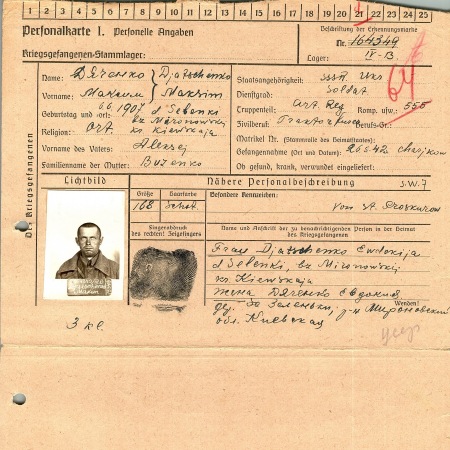 1 2 3 4 5 6 7 8 9 10 11 12 13 14 15 16 17 18 19 20 21 22 23 24 25
Personalkarte I. Personelle Angaben
Beschriftung der Erkennungsmarke
Kriegsgefangenen-Stammlager: Nr. 164349
Lager: IV-B
Des Kriegsgefangenen
Name: Дяченко Djatschenko
Vorname: Максим Maksim
Geburtstag und -ort: 6.6.1907 d Selenki
bz Mironowskij
Religion: Ort. kr Kiewskaja
Vorname des Vaters: Alexej
Familienname der Mutter: Buzenko
Staatsangehörigkeit: Ukr
Dienstgrad: Soldat
Truppenteil: Art. Reg Komp. usw.: 555
Zivilberuf: Berufs-Gr.:
Matrikel Nr. (Stammrolle des Heimatstaates):
Gefangennahme (Ort und Datum): 26.5.42 Charjkow
Ob gesund, krank, verwundet eingeliefert:
Lichtbild
Nähere Personalbeschreibung
S.W.7
Größe Haarfarbe Besondere Kennzeichen:
168
Fingerabdruck
des rechten! Zeigefingers
Name und Anschrift der zu benachrichtigenden Person in der Heimat
des Kriegsgefangenen
Frau Djatschenko Ewdokija
d Selenki, bz Mironowskij
kr. Kiewskaja
жена Дяченко Евдокия
дер. Зеленьки, р-н Мироновский
обл. Киевская
Wenden!